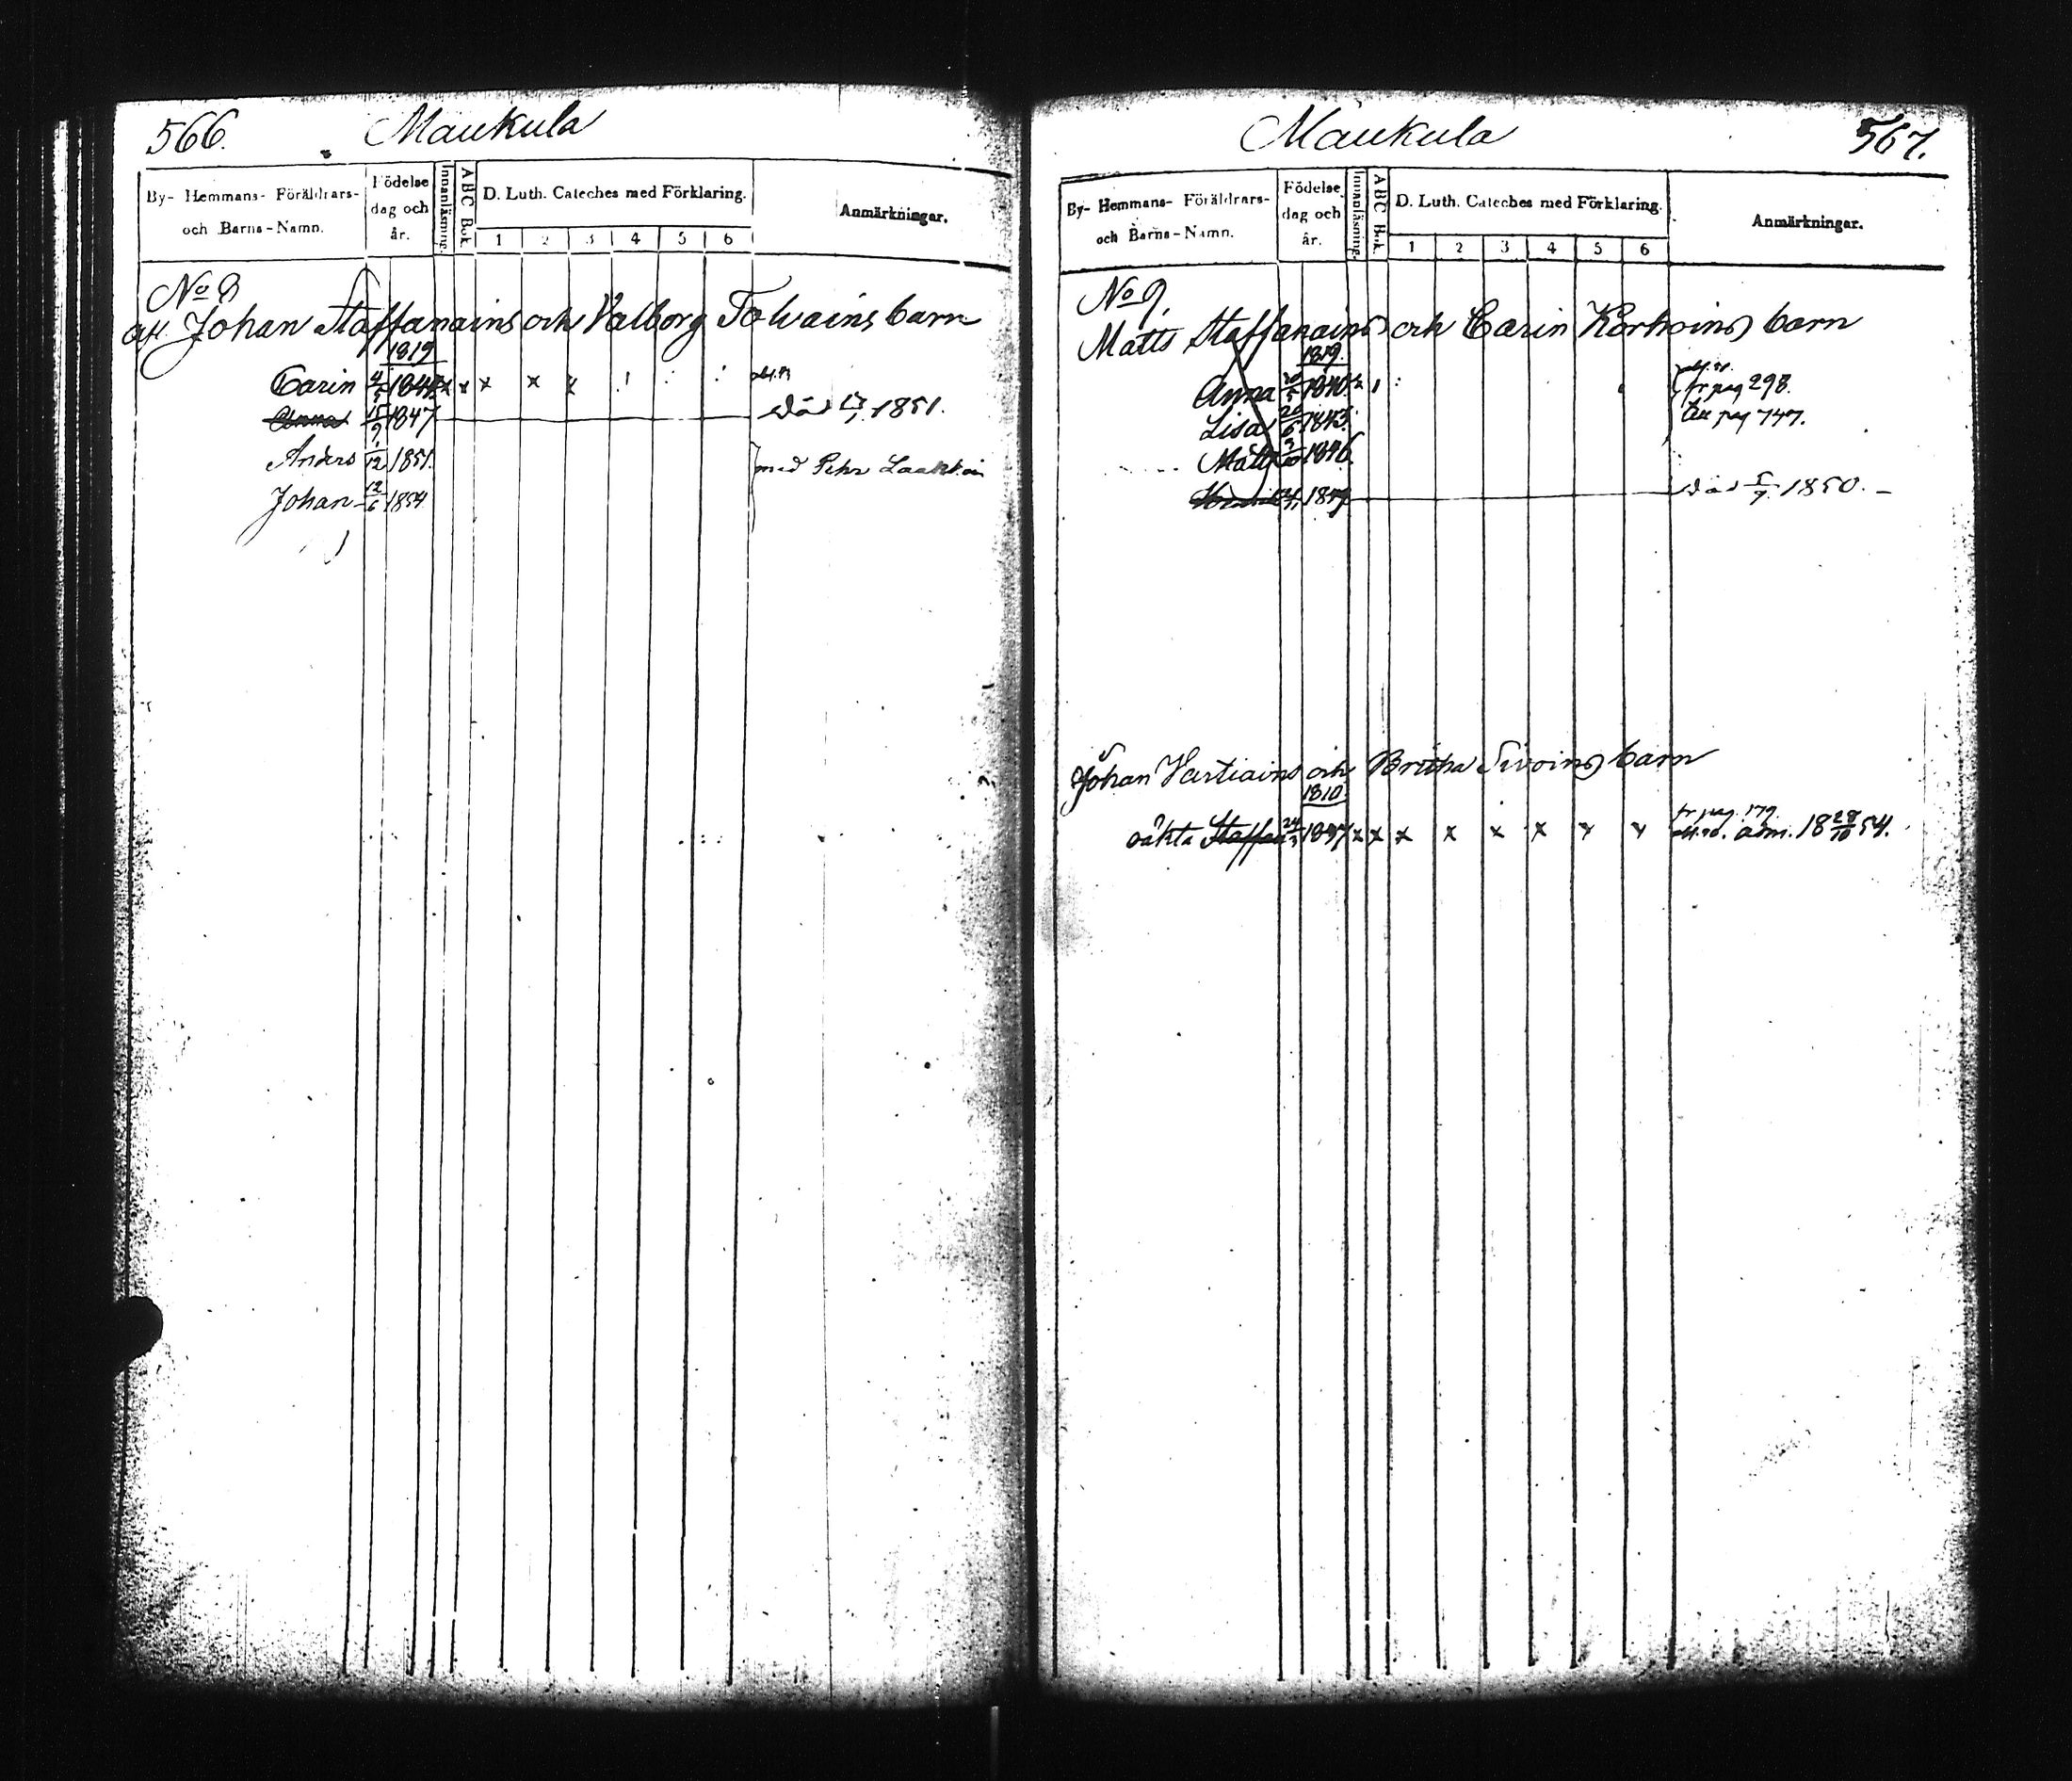 566. Maukula
By- Hemmans- Föräldrars- och Barns-Namn. Födelse dag och år. Innanläsning. ABC Bok. D. Luth. Cateches med Förklaring. Anmärkningar.
1 2 3 4 5 6
No 8
Johan Staffanains och Valborg Tolvains barn
1819
Carin 4/5 1844 x x x x x
Anna 15/9 1847 död 1851.
Anders 1/12 1851. med Pehr Laakkoin
Johan 12/6 1854
Maukula 567.
By- Hemmans- Föräldrars- och Barns-Namn. Födelse dag och år. Innanläsning. ABC Bok. D. Luth. Cateches med Förklaring. Anmärkningar.
1 2 3 4 5 6
No 9.
Matts Staffanains och Carin Korhoins barn
1819.
Anna 20/5 1840. fr pag 298.
Lisa 20/6 1843. pag 747.
Matts 1846.
1849 död 5/7 1850.
Johan Vartiains och Britha Sivoins barn
1810
oäkta Staffan 24/3 1837 x x x x x x x x fr pag. 179. adm. 18 28/10 54.